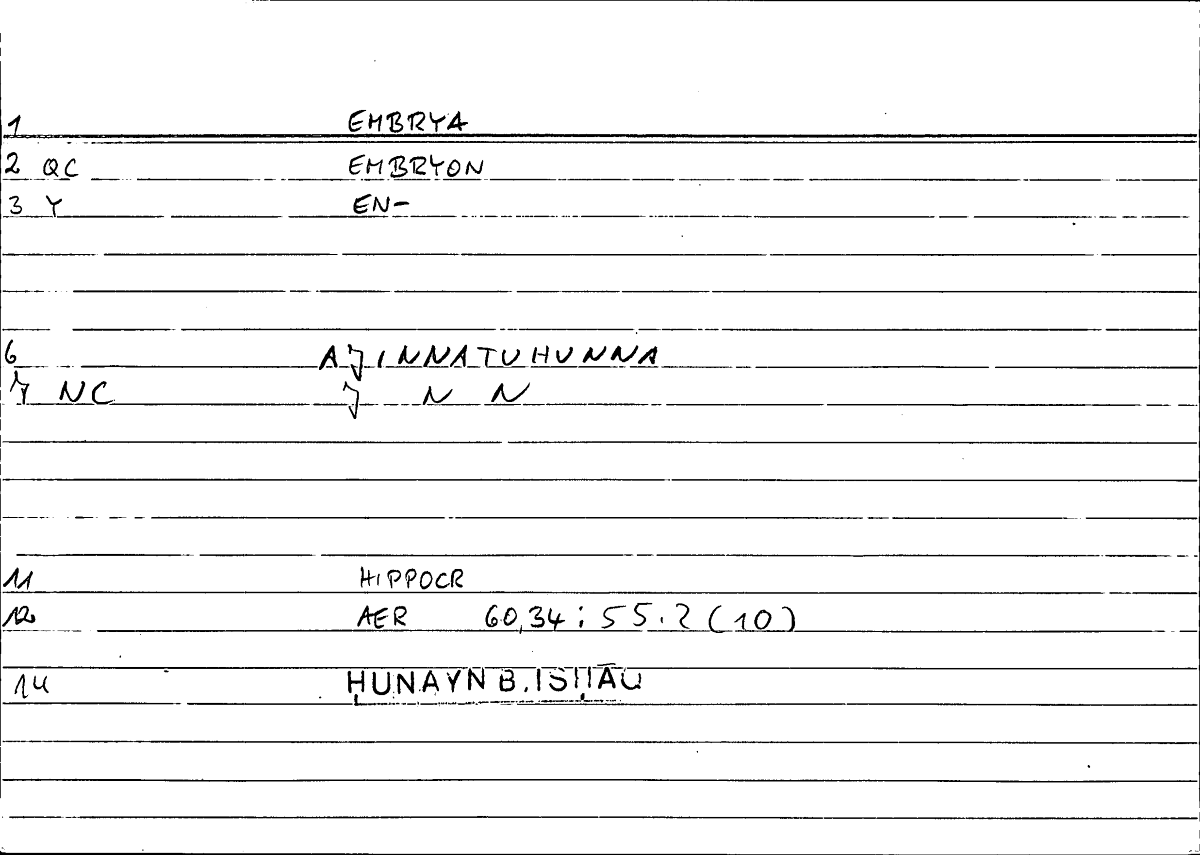 1 EMBRYA
2 QC EMBRYON
3 Y EN-
6 AJINNATUHUNNA
7 NC J N N
11 HIPPOCR
12 AER 60,34 : 55.2 (10)
14 ḤUNAYN B. ISḤĀQ